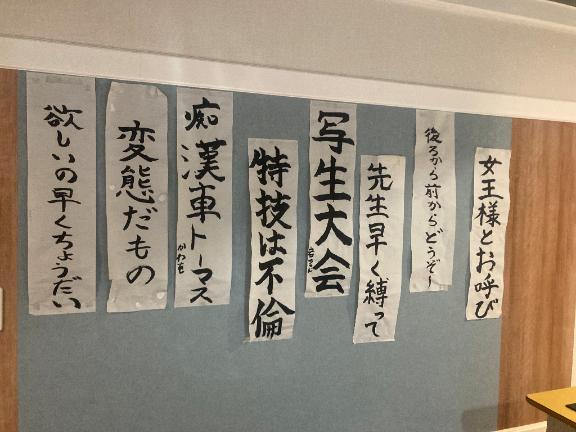 女王様とお呼び
後ろから前からどうぞ〜
先生早く縛って
写生大会
特技は不倫
痴漢車トーマス
かわも
変態だもの
欲しいの早くちょうだい